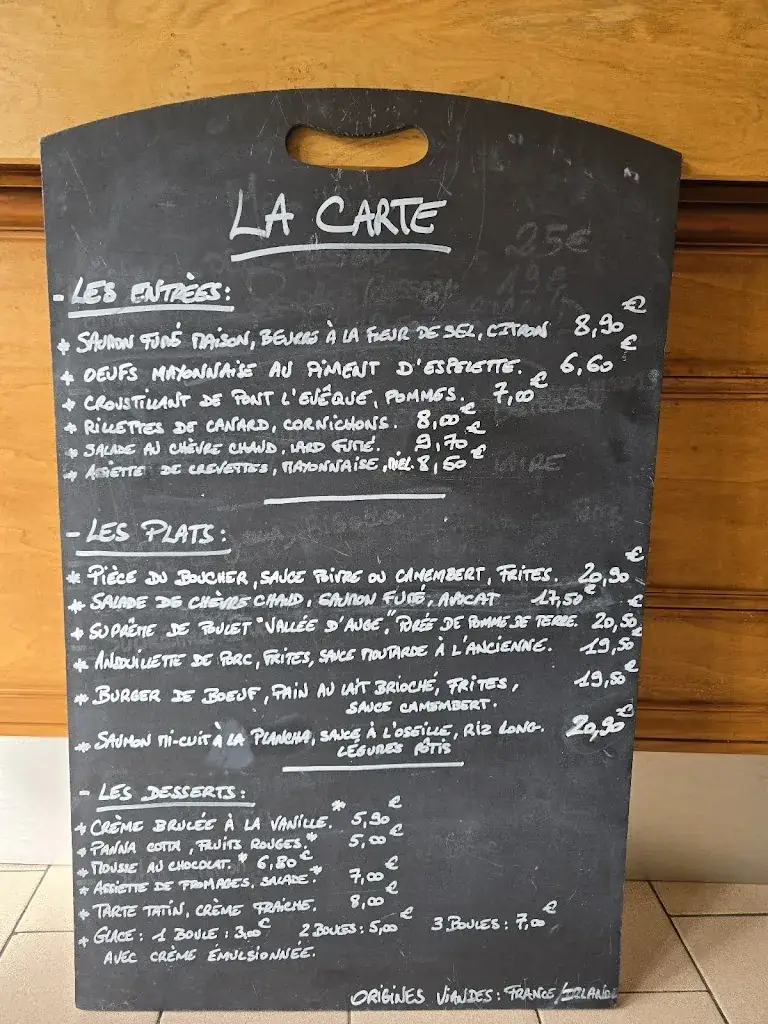 LA CARTE
25€
- LES ENTRÈES:
* SAUMON FUMÉ MAISON, BEURRE À LA FLEUR DE SEL, CITRON 8,90€
* OEUFS MAYONNAISE AU PIMENT D'ESPELETTE. 6,60€
* CROUSTILLANT DE PONT L'EVÊQUE, POMMES. 7,00€
* RILLETTES DE CANARD, CORNICHONS. 8,00€
* SALADE AU CHÈVRE CHAUD, LARD FUMÉ. 9,70€
* ASSIETTE DE CREVETTES, MAYONNAISE, MIEL. 8,60€
- LES PLATS:
* PIÈCE DU BOUCHER, SAUCE POIVRE OU CAMEMBERT, FRITES. 20,90€
* SALADE DE CHÈVRE CHAUD, SAUMON FUMÉ, AVOCAT 17,50€
* SUPRÊME DE POULET "VALLÉE D'AUGE", PURÉE DE POMME DE TERRE. 20,50€
* ANDOUILLETTE DE PORC, FRITES, SAUCE MOUTARDE À L'ANCIENNE. 19,50€
* BURGER DE BOEUF, PAIN AU LAIT BRIOCHÉ, FRITES, 19,50€
SAUCE CAMEMBERT.
* SAUMON MI-CUIT À LA PLANCHA, SAUCE À L'OSEILLE, RIZ LONG. 20,90€
LÉGUMES RÔTIS
- LES DESSERTS:
* CRÈME BRULÉE À LA VANILLE.* 5,90€
* PANNA COTTA, FRUITS ROUGES.* 5,00€
* MOUSSE AU CHOCOLAT.* 6,80€
* ASSIETTE DE FROMAGES, SALADE.* 7,00€
* TARTE TATIN, CRÈME FRAICHE. 8,00€
* GLACE: 1 BOULE: 3,00€ 2 BOULES: 5,00€ 3 BOULES: 7,00€
AVEC CRÈME ÉMULSIONNÉE.
ORIGINES VIANDES: FRANCE/IRLANDE